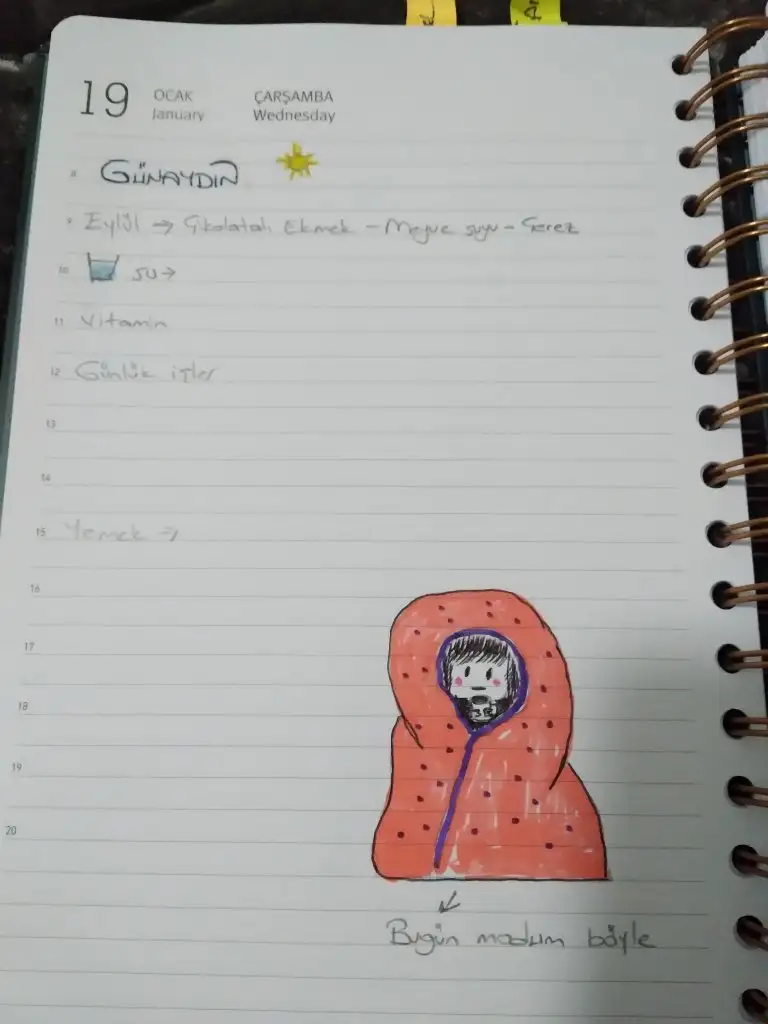 19 OCAK ÇARŞAMBA
January Wednesday
8 GÜNAYDIN
9 Eylül → Çikolatalı Ekmek - Meyve suyu - Çerez
10 su →
11 Vitamin
12 Günlük işler
13
14
15 Yemek →
16
17
18
19
20
Bugün modum böyle